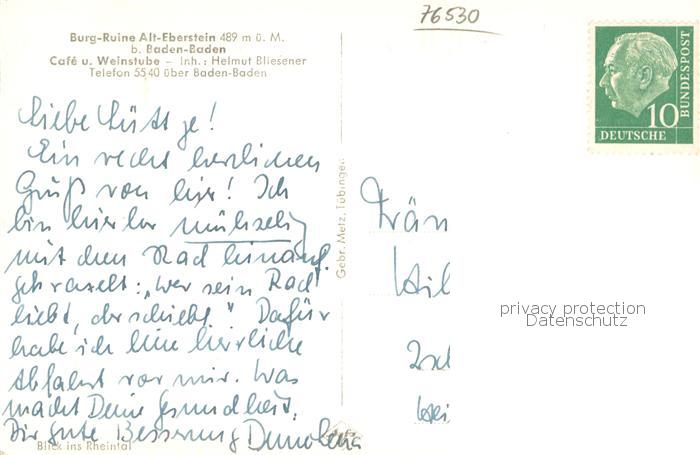 76530
Burg-Ruine Alt-Eberstein 489 m ü. M.
b. Baden-Baden
Café u. Weinstube – Inh.: Helmut Bliesener
Telefon 5540 über Baden-Baden
BUNDESPOST
10
DEUTSCHE
Liebe
Ein recht herzlichen
Gruß von hier! Ich
bin hierher mühselig
mit dem Rad hinauf
gekraxelt: „wer sein Rad
liebt, der schiebt." Dafür
habe ich eine herrliche
Abfahrt vor mir. Was
macht Deine Gesundheit.
Dir gute Besserung
Blick ins Rheintal
Gebr. Metz, Tübingen
Frän
privacy protection
Datenschutz